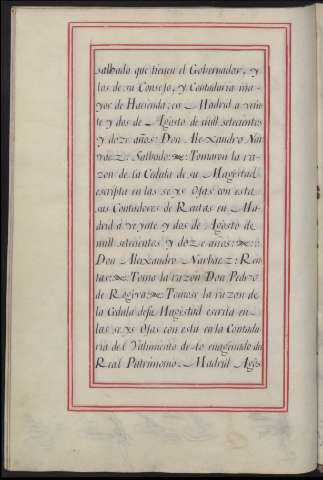 salbado que tienen el Gobernador, y
los de su Consejo, y Contaduria ma-
yor de Hacienda; en Madrid a vein
te y dos de Agosto de mill setecientos
y doze años: Don Alexandro Nar
vaez: Salbado: Tomaron la ra-
zon de la Cedula de su Magestad
escripta en las seys ojas con esta
sus Contadores de Rentas en Ma-
drid a veynte y dos de Agosto de
mill setecientos y doze años:
Don Alexandro Narbaez: Ren
tas: Tomo la razon Don Pedro
de
la Cedula desu Magestad escrita en
las seys ojas con esta en la Contadu
ria del Valimiento de lo enagenado del
Real Patrimonio. Madrid Agos